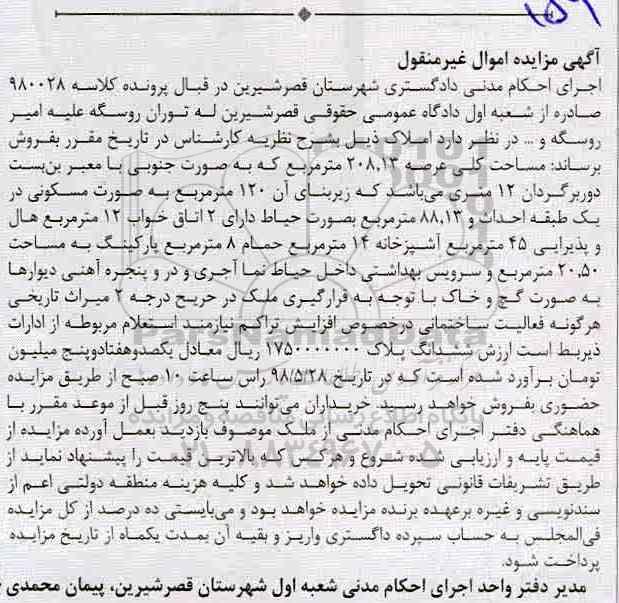 ۱۵۹
آگهی مزایده اموال غیرمنقول
اجرای احکام مدنی دادگستری شهرستان قصرشیرین در قبال پرونده کلاسه ۹۸۰۰۲۸
صادره از شعبه اول دادگاه عمومی حقوقی قصرشیرین له توران روسگه علیه امیر
روسگه و ... در نظر دارد املاک ذیل بشرح نظریه کارشناس در تاریخ مقرر بفروش
برساند: مساحت کلی عرصه ۲۰۸,۱۳ مترمربع که به صورت جنوبی با معبر بن‌بست
دوربرگردان ۱۲ متری می‌باشد که زیربنای آن ۱۲۰ مترمربع به صورت مسکونی در
یک طبقه احداث و ۸۸,۱۳ مترمربع بصورت حیاط دارای ۲ اتاق خواب ۱۲ مترمربع هال
و پذیرایی ۴۵ مترمربع آشپزخانه ۱۴ مترمربع حمام ۸ مترمربع پارکینگ به مساحت
۲۰,۵۰ مترمربع و سرویس بهداشتی داخل حیاط نما آجری و در و پنجره آهنی دیوارها
به صورت گچ و خاک با توجه به قرارگیری ملک در حریم درجه ۲ میراث تاریخی
هرگونه فعالیت ساختمانی درخصوص افزایش تراکم نیازمند استعلام مربوطه از ادارات
ذیربط است ارزش ششدانگ پلاک ۱۷۵۰۰۰۰۰۰۰ ریال معادل یکصدوهفتادوپنج میلیون
تومان برآورد شده است که در تاریخ ۹۸/۵/۲۸ راس ساعت ۱۰ صبح از طریق مزایده
حضوری بفروش خواهد رسید خریداران می‌توانند پنج روز قبل از موعد مقرر با
هماهنگی دفتر اجرای احکام مدنی از ملک موصوف بازدید بعمل آورده مزایده از
قیمت پایه و ارزیابی شده شروع و هر کس که بالاترین قیمت را پیشنهاد نماید از
طریق تشریفات قانونی تحویل داده خواهد شد و کلیه هزینه منطقه دولتی اعم از
سندنویسی و غیره برعهده برنده مزایده خواهد بود و می‌بایستی ده درصد از کل مزایده
فی‌المجلس به حساب سپرده داگستری واریز و بقیه آن بمدت یکماه از تاریخ مزایده
پرداخت شود.
مدیر دفتر واحد اجرای احکام مدنی شعبه اول شهرستان قصرشیرین، پیمان محمدی
ParsNamadData
پایگاه اطلاع رسانی مناقصه و مزایده
۰۲۱-۸۸۳۴۹۶۷۰-۵